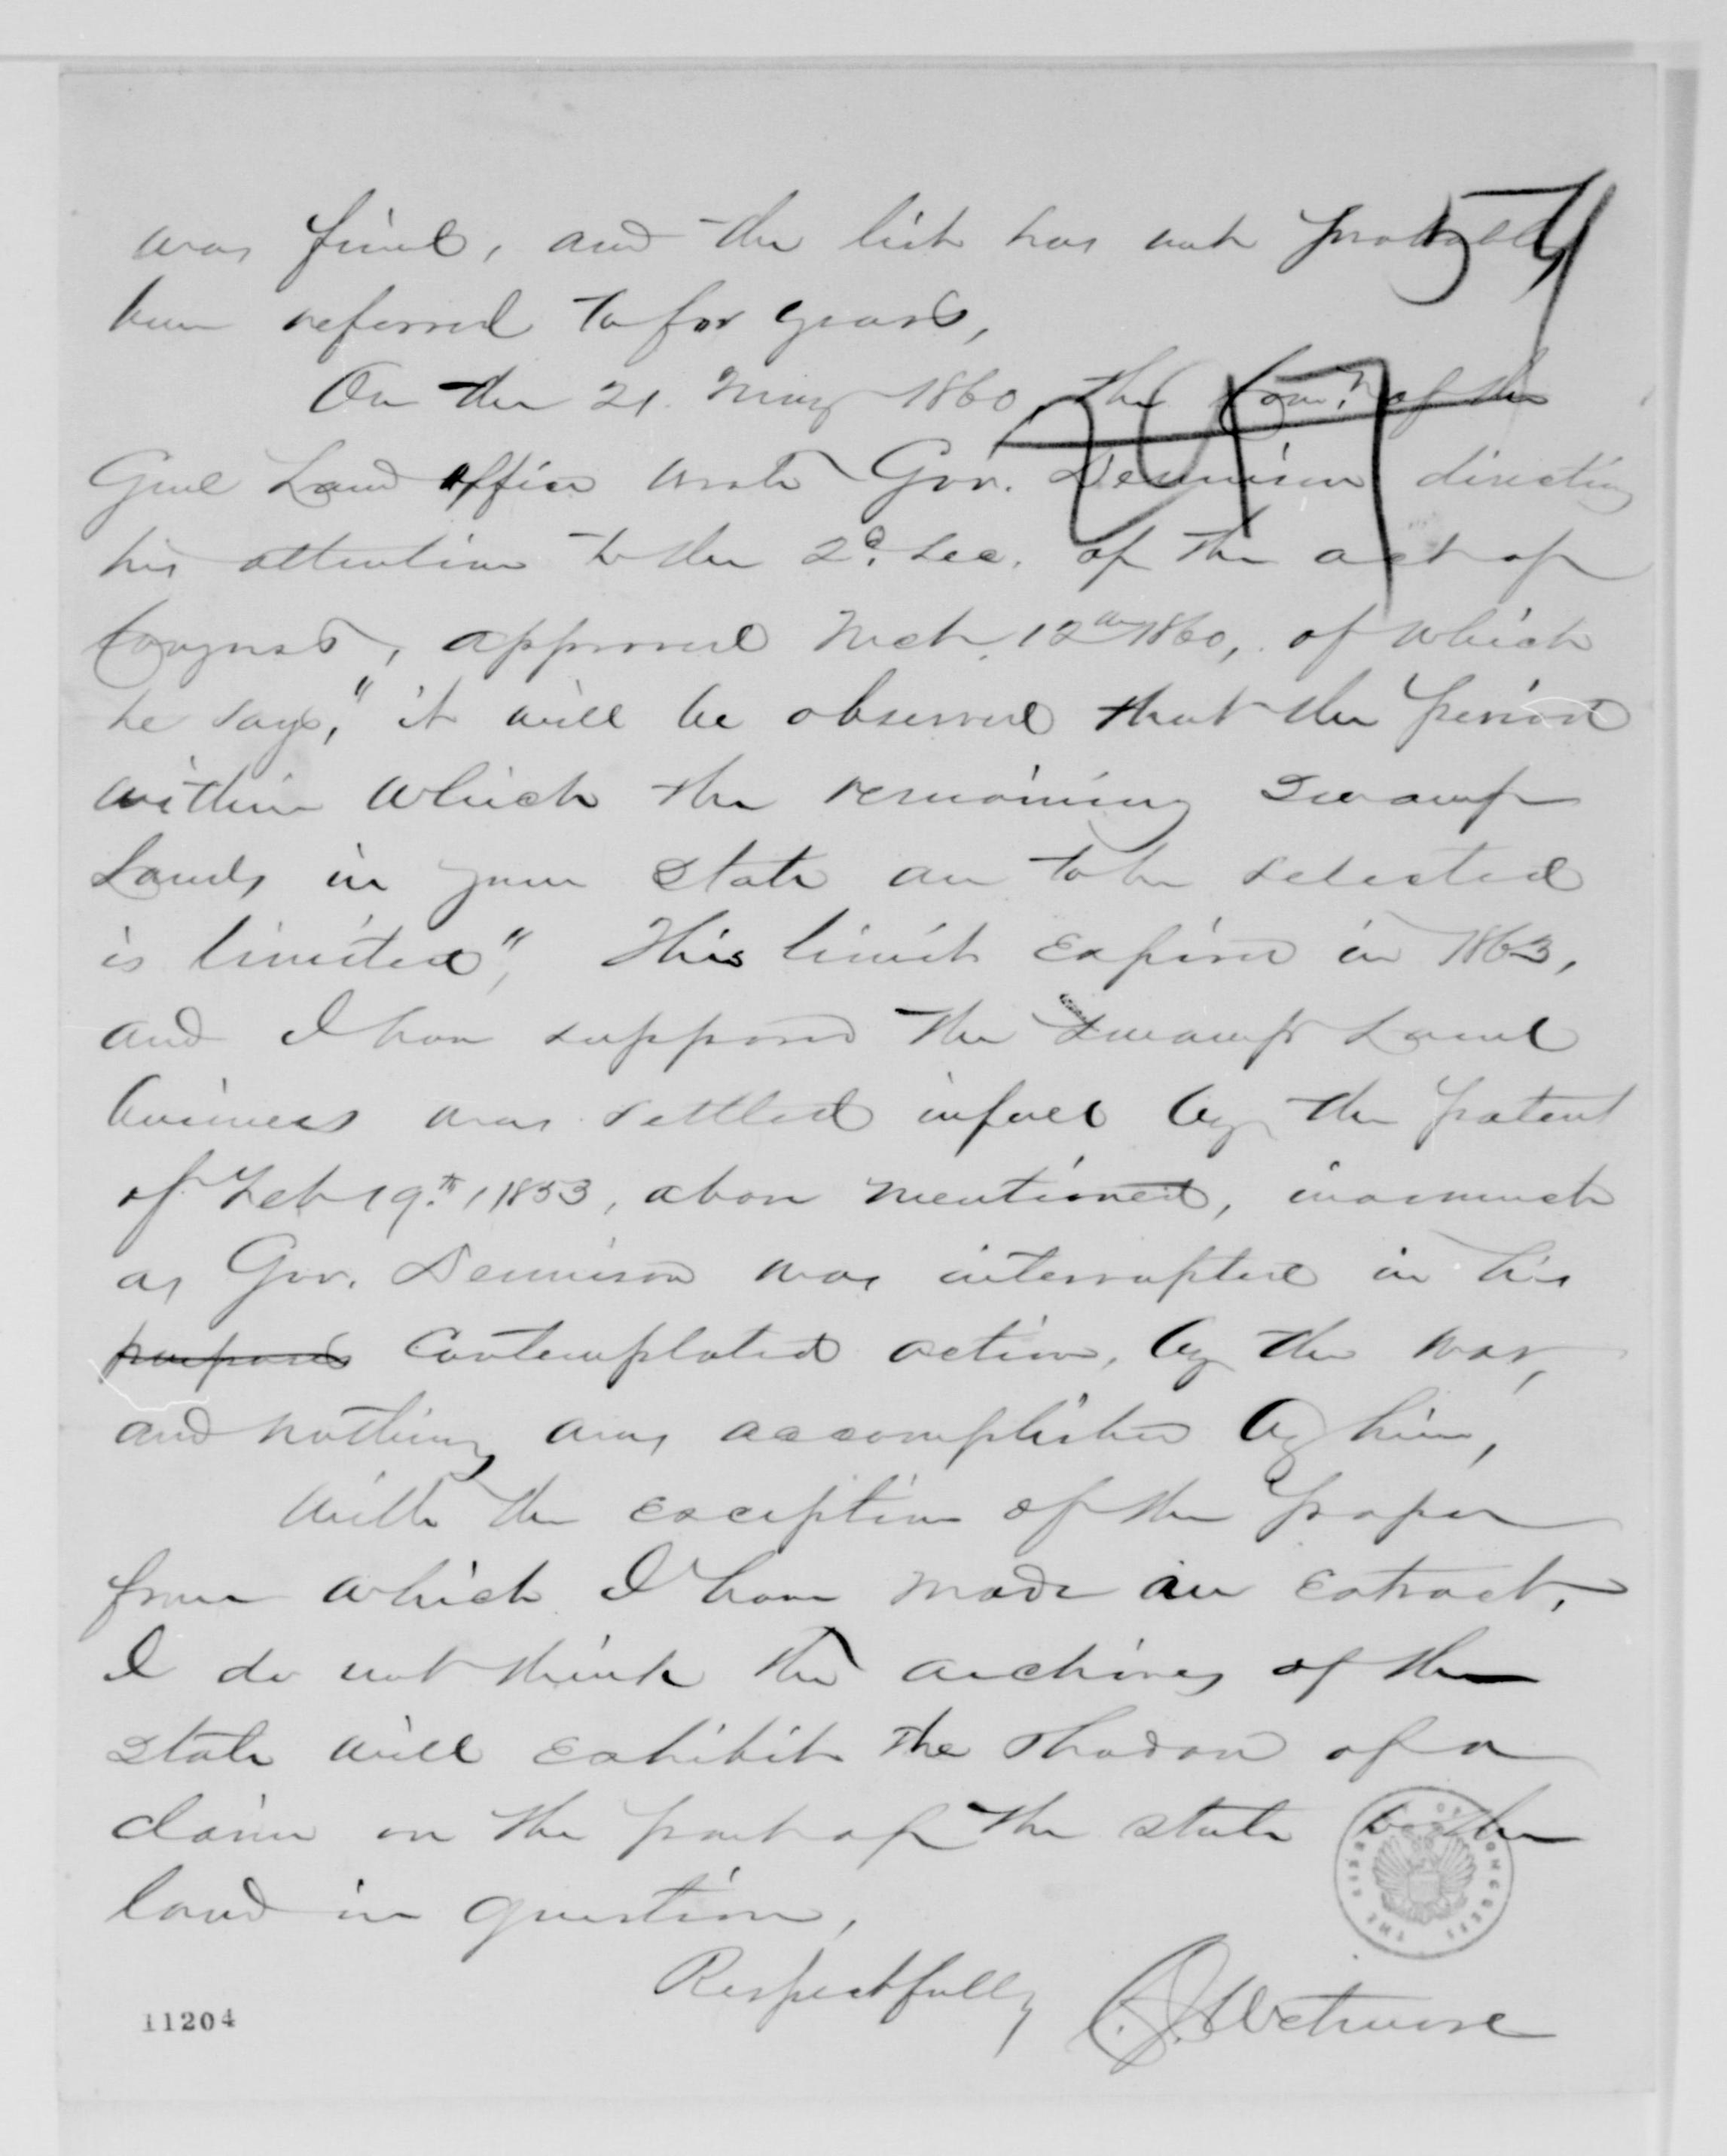 was final, and the list has not probably
been referred to for years,
On the 21. May 1860, the Com.r of the
Genl Land office wrote Gov. Dennison directing
his attention to the 2d. Sec. of the act of
Congress, approved Mch. 12th 1860, of which
he says, "it will be observed that the period
within which the remaining Swamp
Lands in your State are to be selected
is limited", This limit expired in 1863,
and I have supposed the Swamp Land
business was settled in full by the patent
of Feb 19.th, 1853, above mentioned, inasmuch
as Gov. Dennison was interrupted in his
contemplated action, by the war,
and nothing was accomplished by him,
With the exception of the paper
from which I have made an extract,
I do not think the archives of the
State will exhibit the shadow of a
claim on the part of the state to the
land in question,
Respectfully C. J. Wetmore
11204